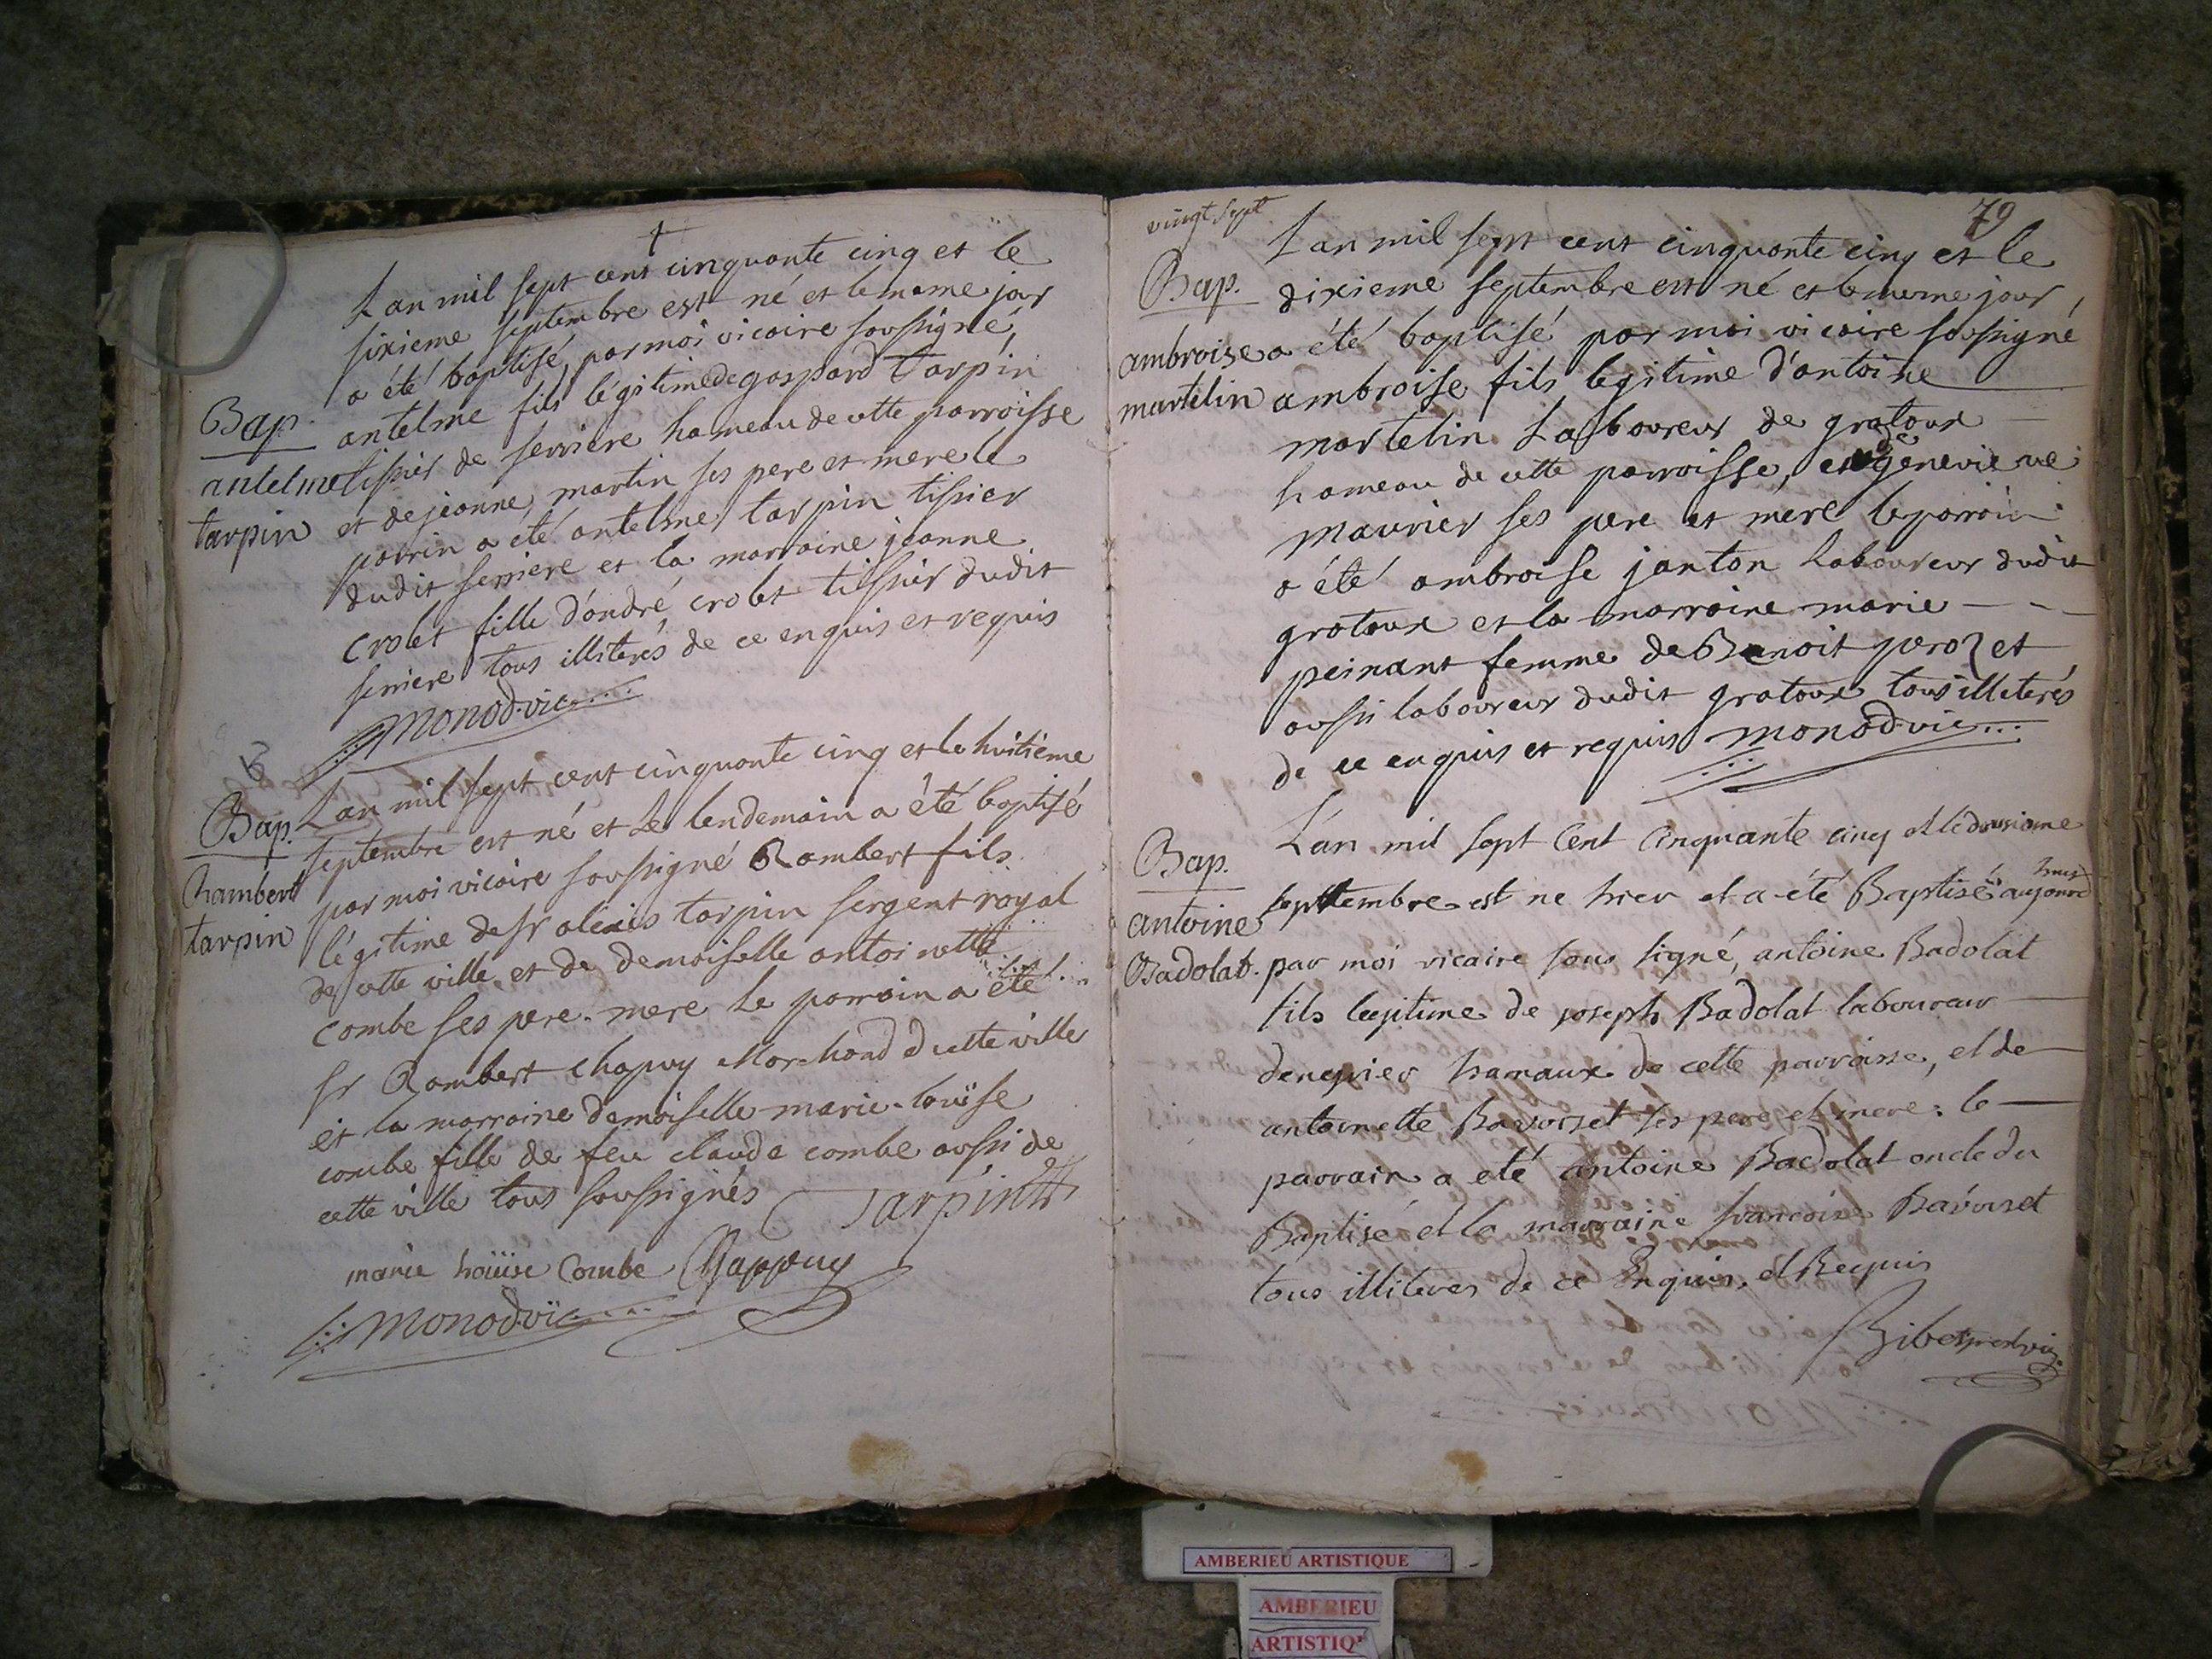 Lan mil sept cent cinquante cinq et le
sixieme septembre est né et le meme jour
a été baptisé, par moi vicaire soussigné,
Bap.
antelme fils légitime de gaspard tarpin
antelme
tissier de serriere hameau de cette parroisse
tarpin
et de jeanne martin ses pere et mere le
parrin a été antelme tarpin tissier
dudit serriere et la marraine jeanne
crolet fille d'andré crolet tissier dudit
serriere tous illiterés de ce enquis et requis
monod vic
Bap.
Rambert
tarpin
Lan mil sept cent cinquante cinq et le huitième
septembre est né et Le lendemain a été baptisé
par moi vicaire soussigné Rambert fils
légitime de sr alexis tarpin sergent royal
de cette ville et de demoiselle antoinette
combe ses pere. mere Le parrain a été
sr Rambert chapuy Marchand de cette ville
et la marraine demoiselle marie-louïse
combe fille de feu claude combe aussi de
cette ville tous soussignés Tarpin
marie louïse Combe Chappuy
monod vic
vingt sept
79
Bap.
ambroise
martelin
Lan mil sept cent cinquante cinq et le
dixieme septembre est né et le meme jour,
a été baptisé par moi vicaire soussigné
ambroise fils legitime d'antoine
martelin Laboureur de gratoux
hameau de cette parroisse, et de genevieve
maurier ses pere et mere le parrain
a été ambroise janton Laboureur dudit
gratoux et la marraine marie
peinant femme de Benoit perozet
aussi laboureur dudit gratoux tous illeterés
de ce enquis et requis monod vic
Bap.
antoine
Badolat.
L'an mil sept Cent Cinquante cinq et le douzieme
septembre est ne hier et a été Baptisé aujourd'huy
par moi vicaire sous signé, antoine Badolat
fils legitime de joseph Badolat laboureur
hamaux de cette parroisse, et de
antoinette Bavozet ses pere et mere. le
parrain a eté antoine Badolat oncle du
Baptisé et la marraine francoise Bavozet
tous illiteres de ce Enquis. et Requis
Ribet
AMBERIEU ARTISTIQUE
AMBERIEU
ARTISTIQ